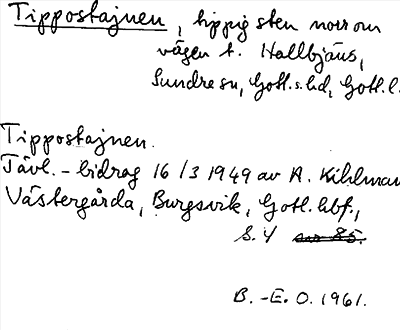 Tippostajnen, tippig sten norr om
vägen t. Hallbjäns,
Sundre sn, Gotl. s. hd, Gotl. l.
Tippostajnen.
Tävl. - bidrag 16/3 1949 av A. Kihlman
Västergårda, Burgsvik, Gotl. hbf.,
S. 4
B. -E. O. 1961.